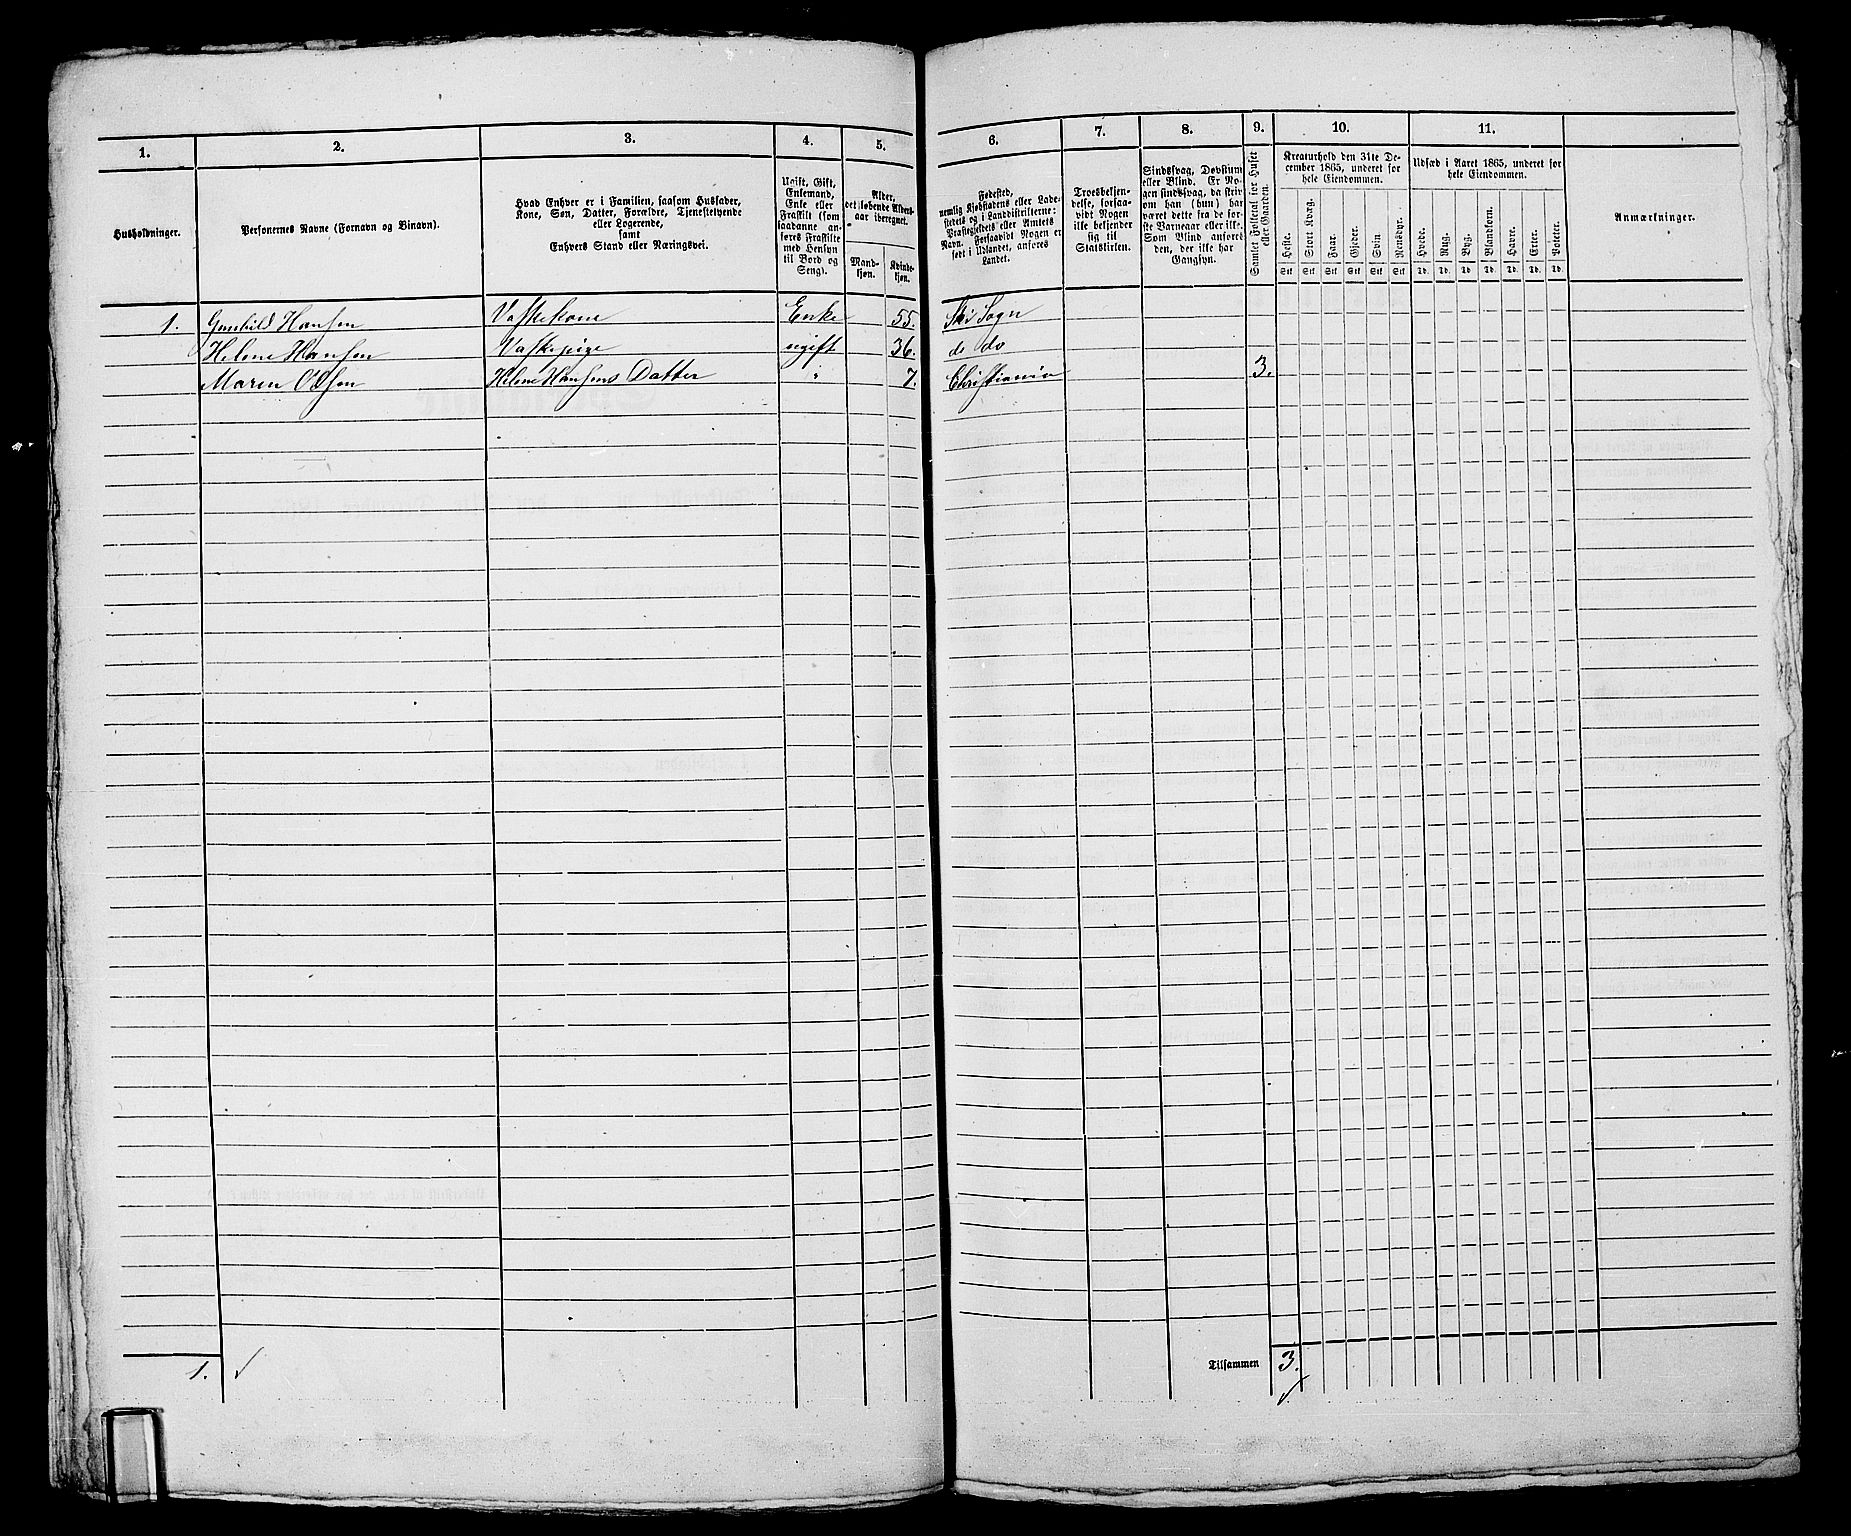 1. 2. 3. 4. 5. 6. 7. 8. 9. 10. 11.
Husholdninger.
Personernes Navne (Fornavn og Binavn).
Hvad Enhver er i Familien, saasom Husfader,
Kone, Søn, Datter, Forældre, Tjenestetyende
eller Logerende,
samt
Enhvers Stand eller Næringsvei.
Ugift, Gift,
Enkemand,
Enke eller
Fraskilt (som
saadanne an-
føres Fraskilte
med Hensyn
til Bord og
Seng).
Alder,
det løbende Alders-
aar iberegnet.
Mand-
kjøn.
Kvinde-
kjøn.
Fødested,
nemlig Kjøbstadens eller Lade-
stedets og i Landdistrikterne:
Præstegjeldets eller Amtets
Navn. Forsaavidt Nogen er
født i Udlandet, anføres
Landet.
Troesbekjen-
delse, forsaa-
vidt Nogen
ikke bekjender
sig til
Statskirken.
Sindssvag, Døvstum
eller Blind. Er No-
gen sindssvag, da skriv
om han (hun) har
været dette fra de før-
ste Barneaar eller ikke.
Som Blind anføres
den, der ikke har
Gangsyn.
Samlet Folketal for Huset
eller Gaarden.
Kreaturhold den 31te De-
cember 1865, underet for
hele Eiendommen.
Heste. Stort Kvæg. Faar. Gjeder. Svin Rensdyr.
Stk Stk Stk Stk Stk Stk
Udsæd i Aaret 1865, underet for
hele Eiendommen.
Hvede. Rug. Byg. Blandkorn. Havre. Erter. Poteter.
Td. Td. Td. Td. Td. Td. Td.
Anmærkninger.
1. Gunhild Hansen Vaskekone Enke 55. Ski Sogn
Helene Hansen Vaskepige ugift 36. do do
Maren Olsen Helene Hansens Datter " 7. Christiania 3.
1. ✓ Tilsammen 3.
✓